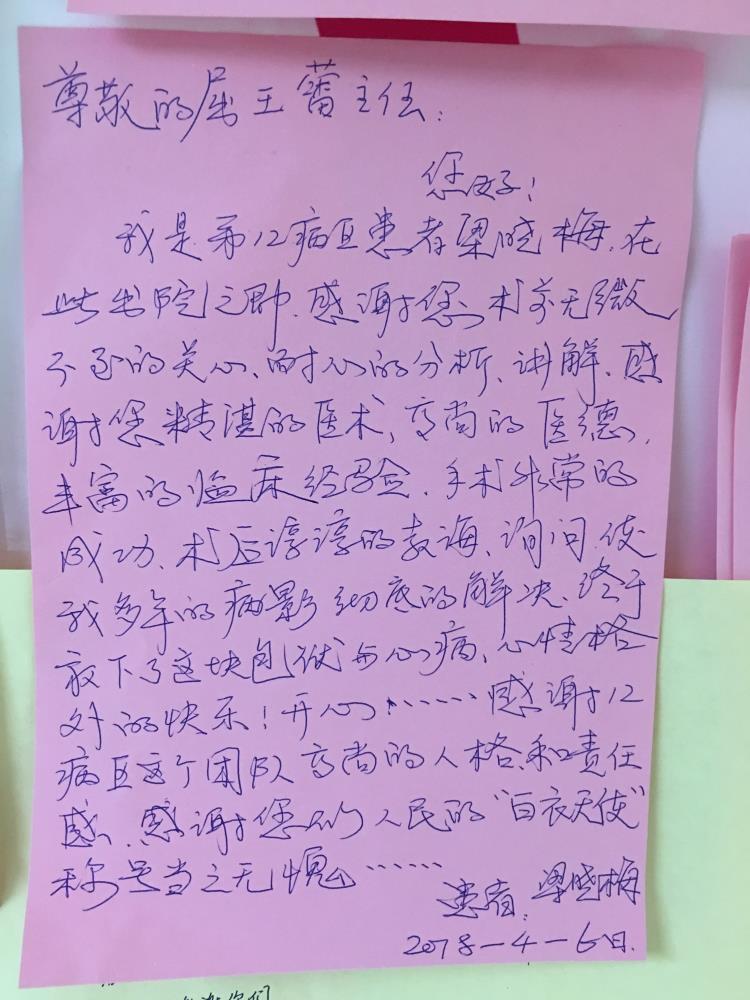 尊敬的屈王蕾主任:
您好!
我是第12病区患者梁晓梅,在
此出院之即,感谢您术前无微
不至的关心、耐心的分析、讲解,感
谢您精湛的医术、高尚的医德,
丰富的临床经验,手术非常的
成功,术后谆谆的教诲、询问,使
我多年的病影彻底的解决,终于
放下了这块包袱与心病,心情格
外的快乐!开心……感谢12
病区这个团队高尚的人格和责任
感,感谢您们人民的“白衣天使”
称号当之无愧……
患者:梁晓梅
2018-4-6日.